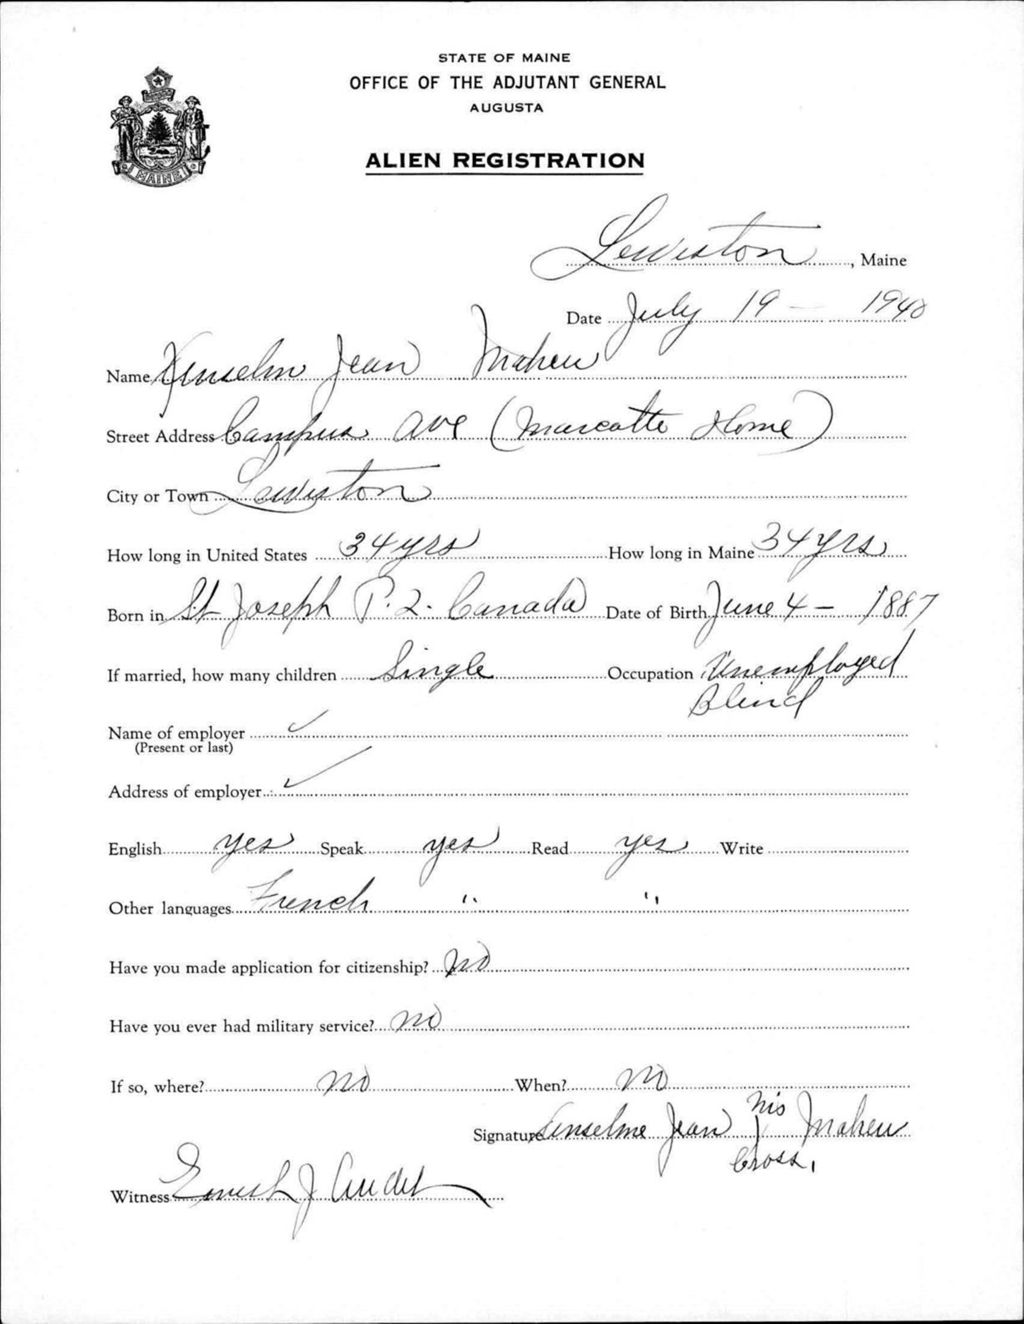 STATE OF MAINE
OFFICE OF THE ADJUTANT GENERAL
AUGUSTA
ALIEN REGISTRATION
MAINE
Lewiston, Maine
Date July 19 - 1940
Name Anselm Jean Maheu
Street Address Campus ave (Marcotte Home)
City or Town Lewiston
How long in United States 34 yrs How long in Maine 34 yrs
Born in St Joseph P.Q. Canada Date of Birth June 4 - 1887
If married, how many children Single Occupation Unemployed
Blind
Name of employer ✓
(Present or last)
Address of employer ✓
English yes Speak yes Read yes Write
Other languages French " "
Have you made application for citizenship? no
Have you ever had military service? no
If so, where? no When? no
Signature Anselme Jean his Maheu
Cross.
Witness Ernest J Audet